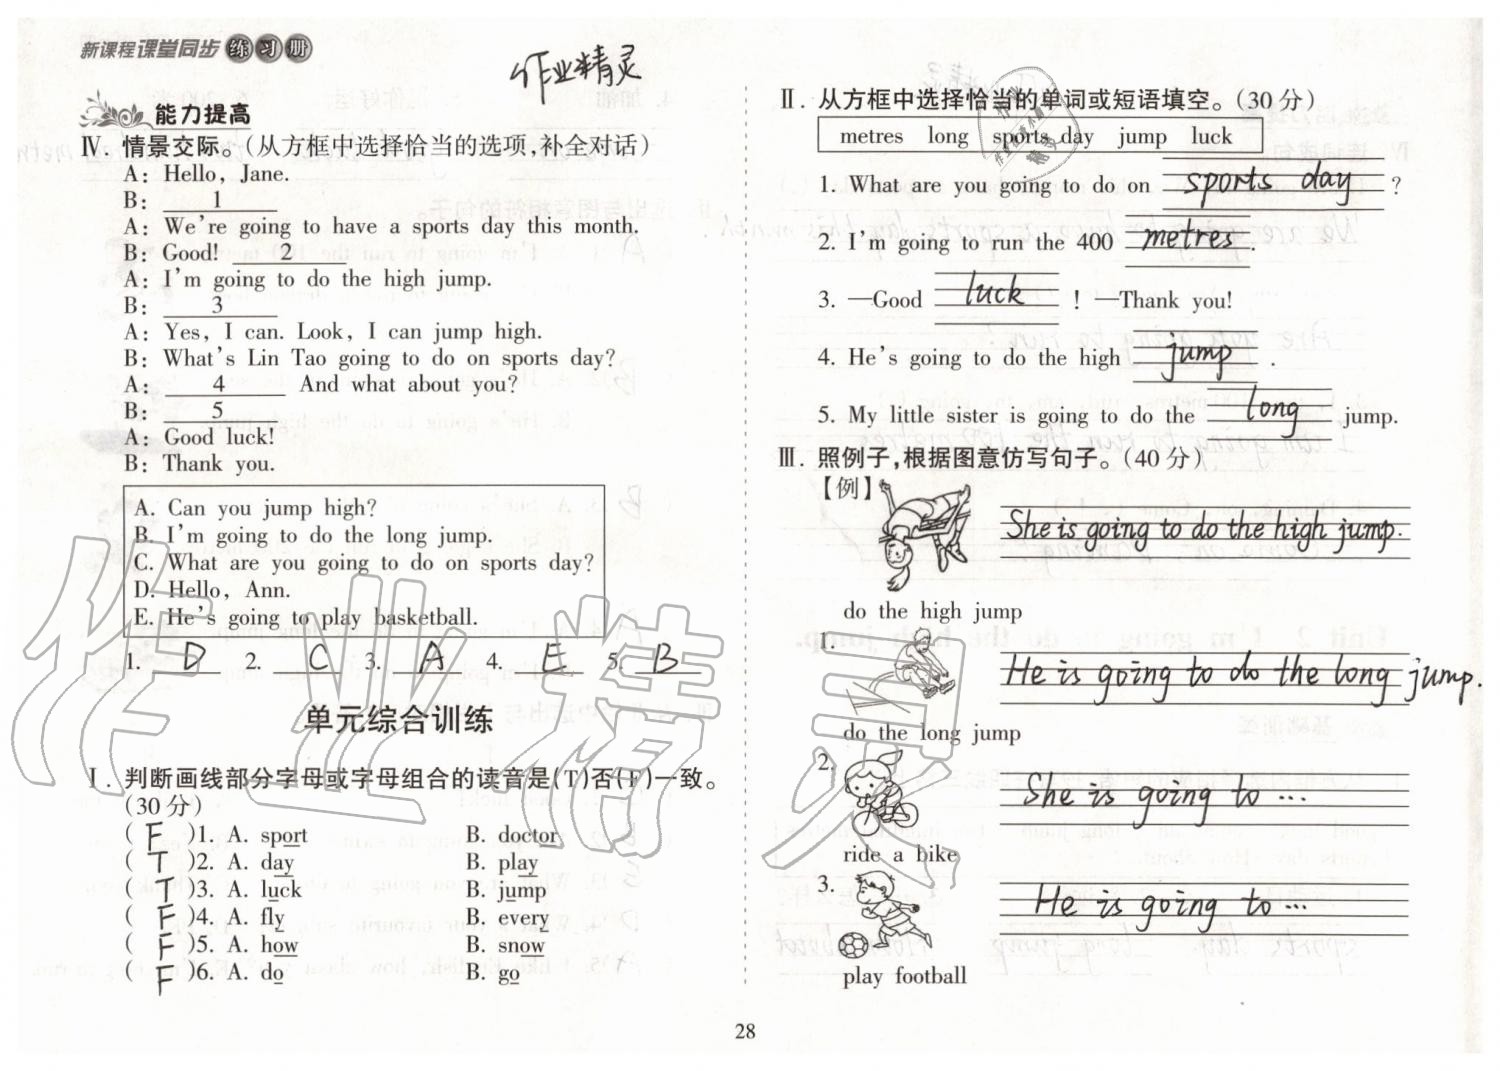 新课程课堂同步练习册
作业精灵
能力提高
Ⅳ. 情景交际。(从方框中选择恰当的选项,补全对话)
A: Hello, Jane.
B: 1
A: We're going to have a sports day this month.
B: Good! 2
A: I'm going to do the high jump.
B: 3
A: Yes, I can. Look, I can jump high.
B: What's Lin Tao going to do on sports day?
A: 4 And what about you?
B: 5
A: Good luck!
B: Thank you.
A. Can you jump high?
B. I'm going to do the long jump.
C. What are you going to do on sports day?
D. Hello, Ann.
E. He's going to play basketball.
1. D 2. C 3. A 4. E 5. B
单元综合训练
Ⅰ. 判断画线部分字母或字母组合的读音是(T)否(F)一致。
(30分)
( F )1. A. sport B. doctor
( T )2. A. day B. play
( T )3. A. luck B. jump
( F )4. A. fly B. every
( F )5. A. how B. snow
( F )6. A. do B. go
Ⅱ. 从方框中选择恰当的单词或短语填空。(30分)
metres long sports day jump luck
1. What are you going to do on sports day ?
2. I'm going to run the 400 metres.
3. —Good luck ! —Thank you!
4. He's going to do the high jump .
5. My little sister is going to do the long jump.
Ⅲ. 照例子,根据图意仿写句子。(40分)
【例】
She is going to do the high jump.
do the high jump
1.
He is going to do the long jump.
do the long jump
2.
She is going to ...
ride a bike
3.
He is going to ...
play football
28
作业精灵